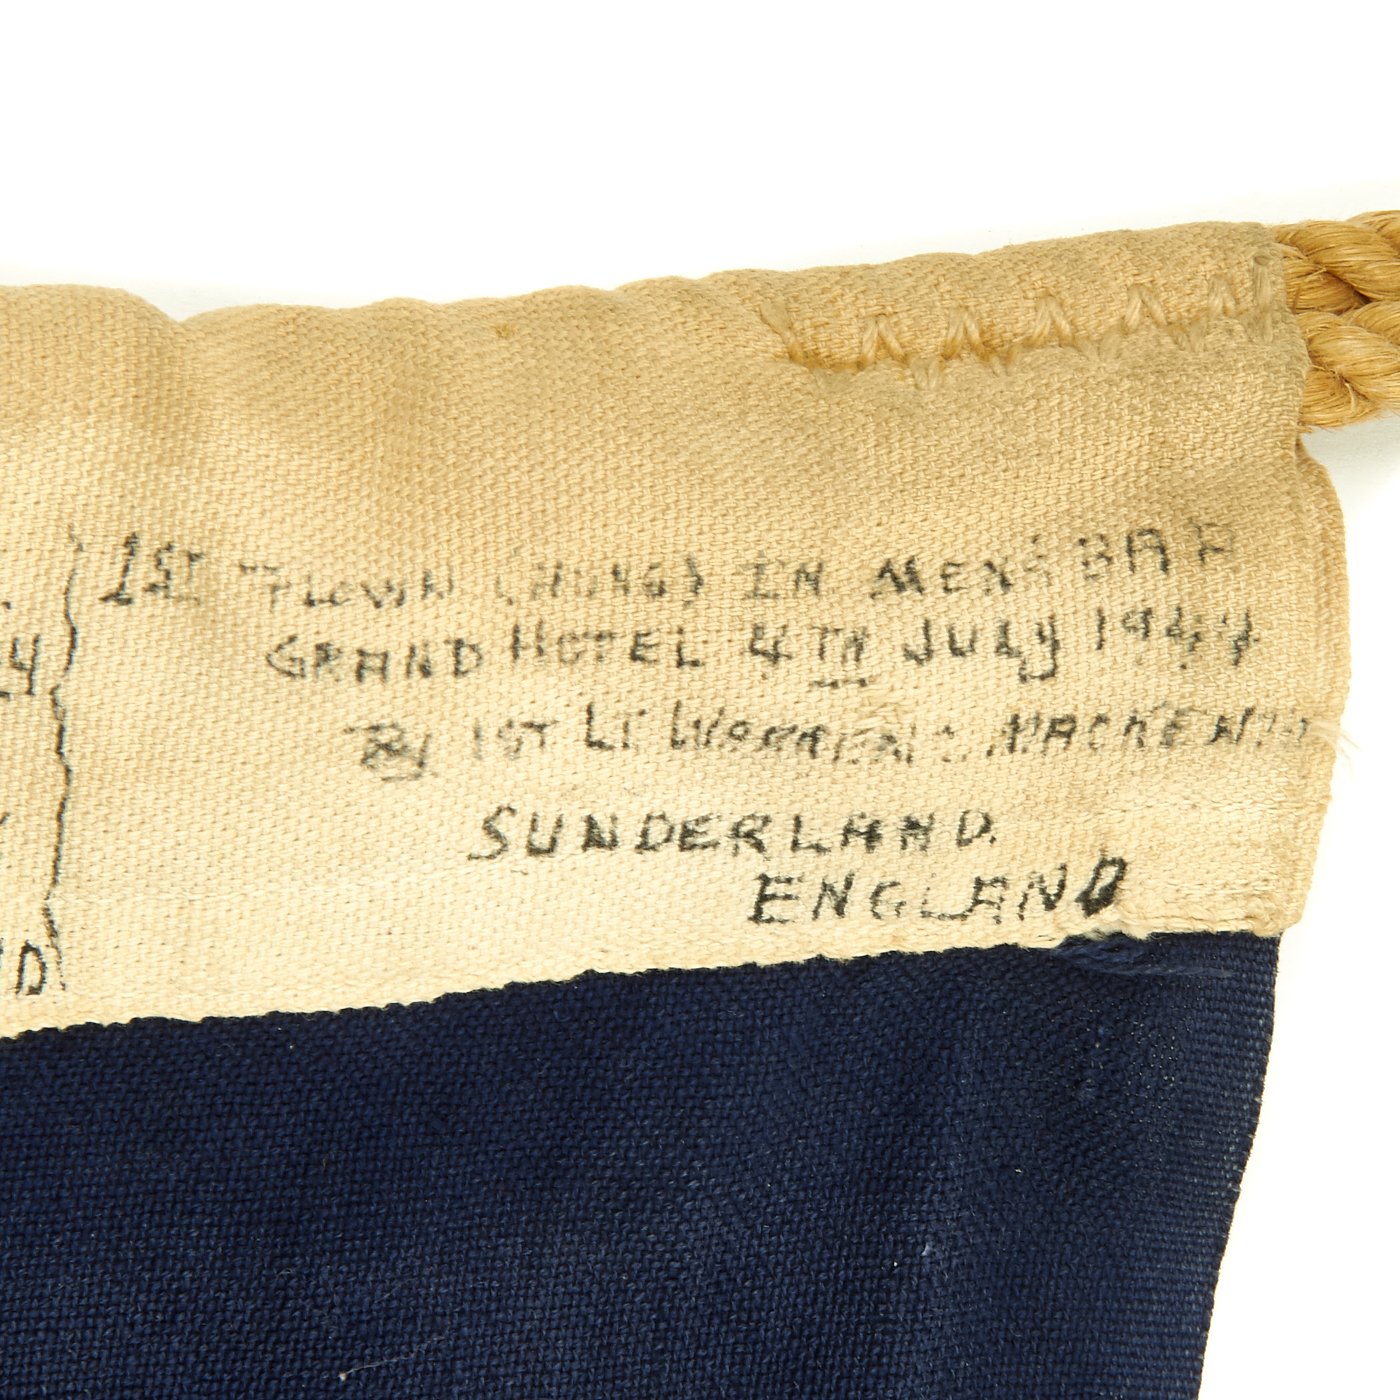 1ST FLOWN (HUNG) IN MEN'S BAR
GRAND HOTEL 4TH JULY 1944
By 1ST LT WARREN MACKENZIE
SUNDERLAND.
ENGLAND